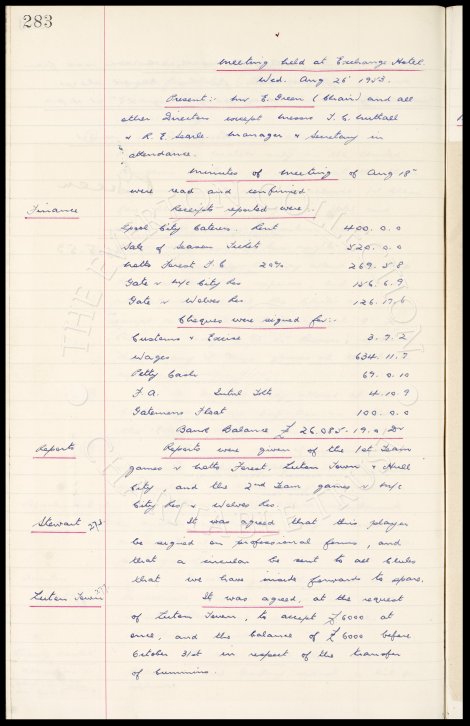 283
Meeting held at Exchange Hotel.
Wed. Aug 26 1953.
Present:- Mr E. Green (Chair) and all
other Directors except Messrs T. C. Nuttall
& R. E. Searle. Manager & Secretary in
attendance.
Minutes of Meeting of Aug 18th
were read and confirmed
Finance Receipts reported were:-
L'pool City Caterers. Rent 400. 0. 0
Sale of Season Tickets 520. 0. 0
Notts Forest F.C 20% 269. 5. 8
Gate v M/c City Res 156. 6. 9
Gate v Wolves Res 126. 17. 6
Cheques were signed for:-
Customs & Excise 3. 7. 2
Wages 634. 11. 7
Petty Cash 69. 0. 10
F.A. Intnl Tkts 4. 10. 9
Gatemens Float 100. 0. 0
Bank Balance £ 26.085. 19. 0 Dr
Reports Reports were given of the 1st Team
games v Notts Forest, Luton Town & Hull
City, and the 2nd Team games v M/c
City Res & Wolves Res.
Stewart 273 It was agreed that this player
be signed on professional forms, and
that a circular be sent to all Clubs
that we have inside forwards to spare.
Luton Town It was agreed, at the request
of Luton Town, to accept £6000 at
once, and the balance of £6000 before
October 31st in respect of the transfer
of Cummins.